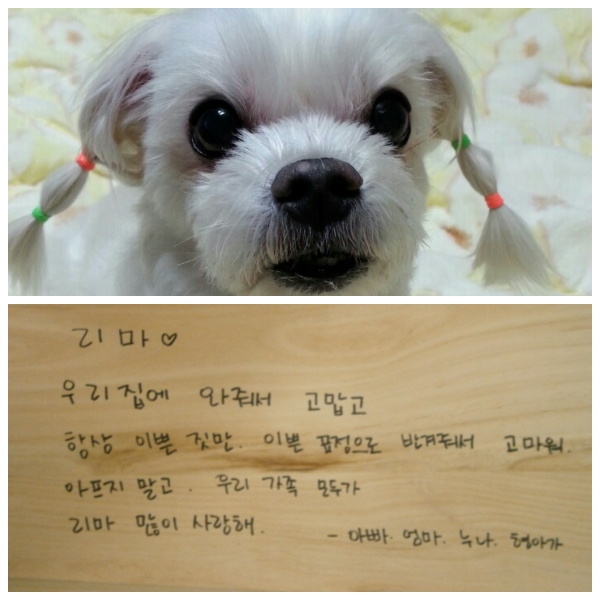 리마♡
우리집에 와줘서 고맙고
항상 이쁜 짓만. 이쁜 표정으로 반겨줘서 고마워.
아프지 말고. 우리 가족 모두가
리마 많이 사랑해.
- 아빠. 엄마. 누나. 형아가